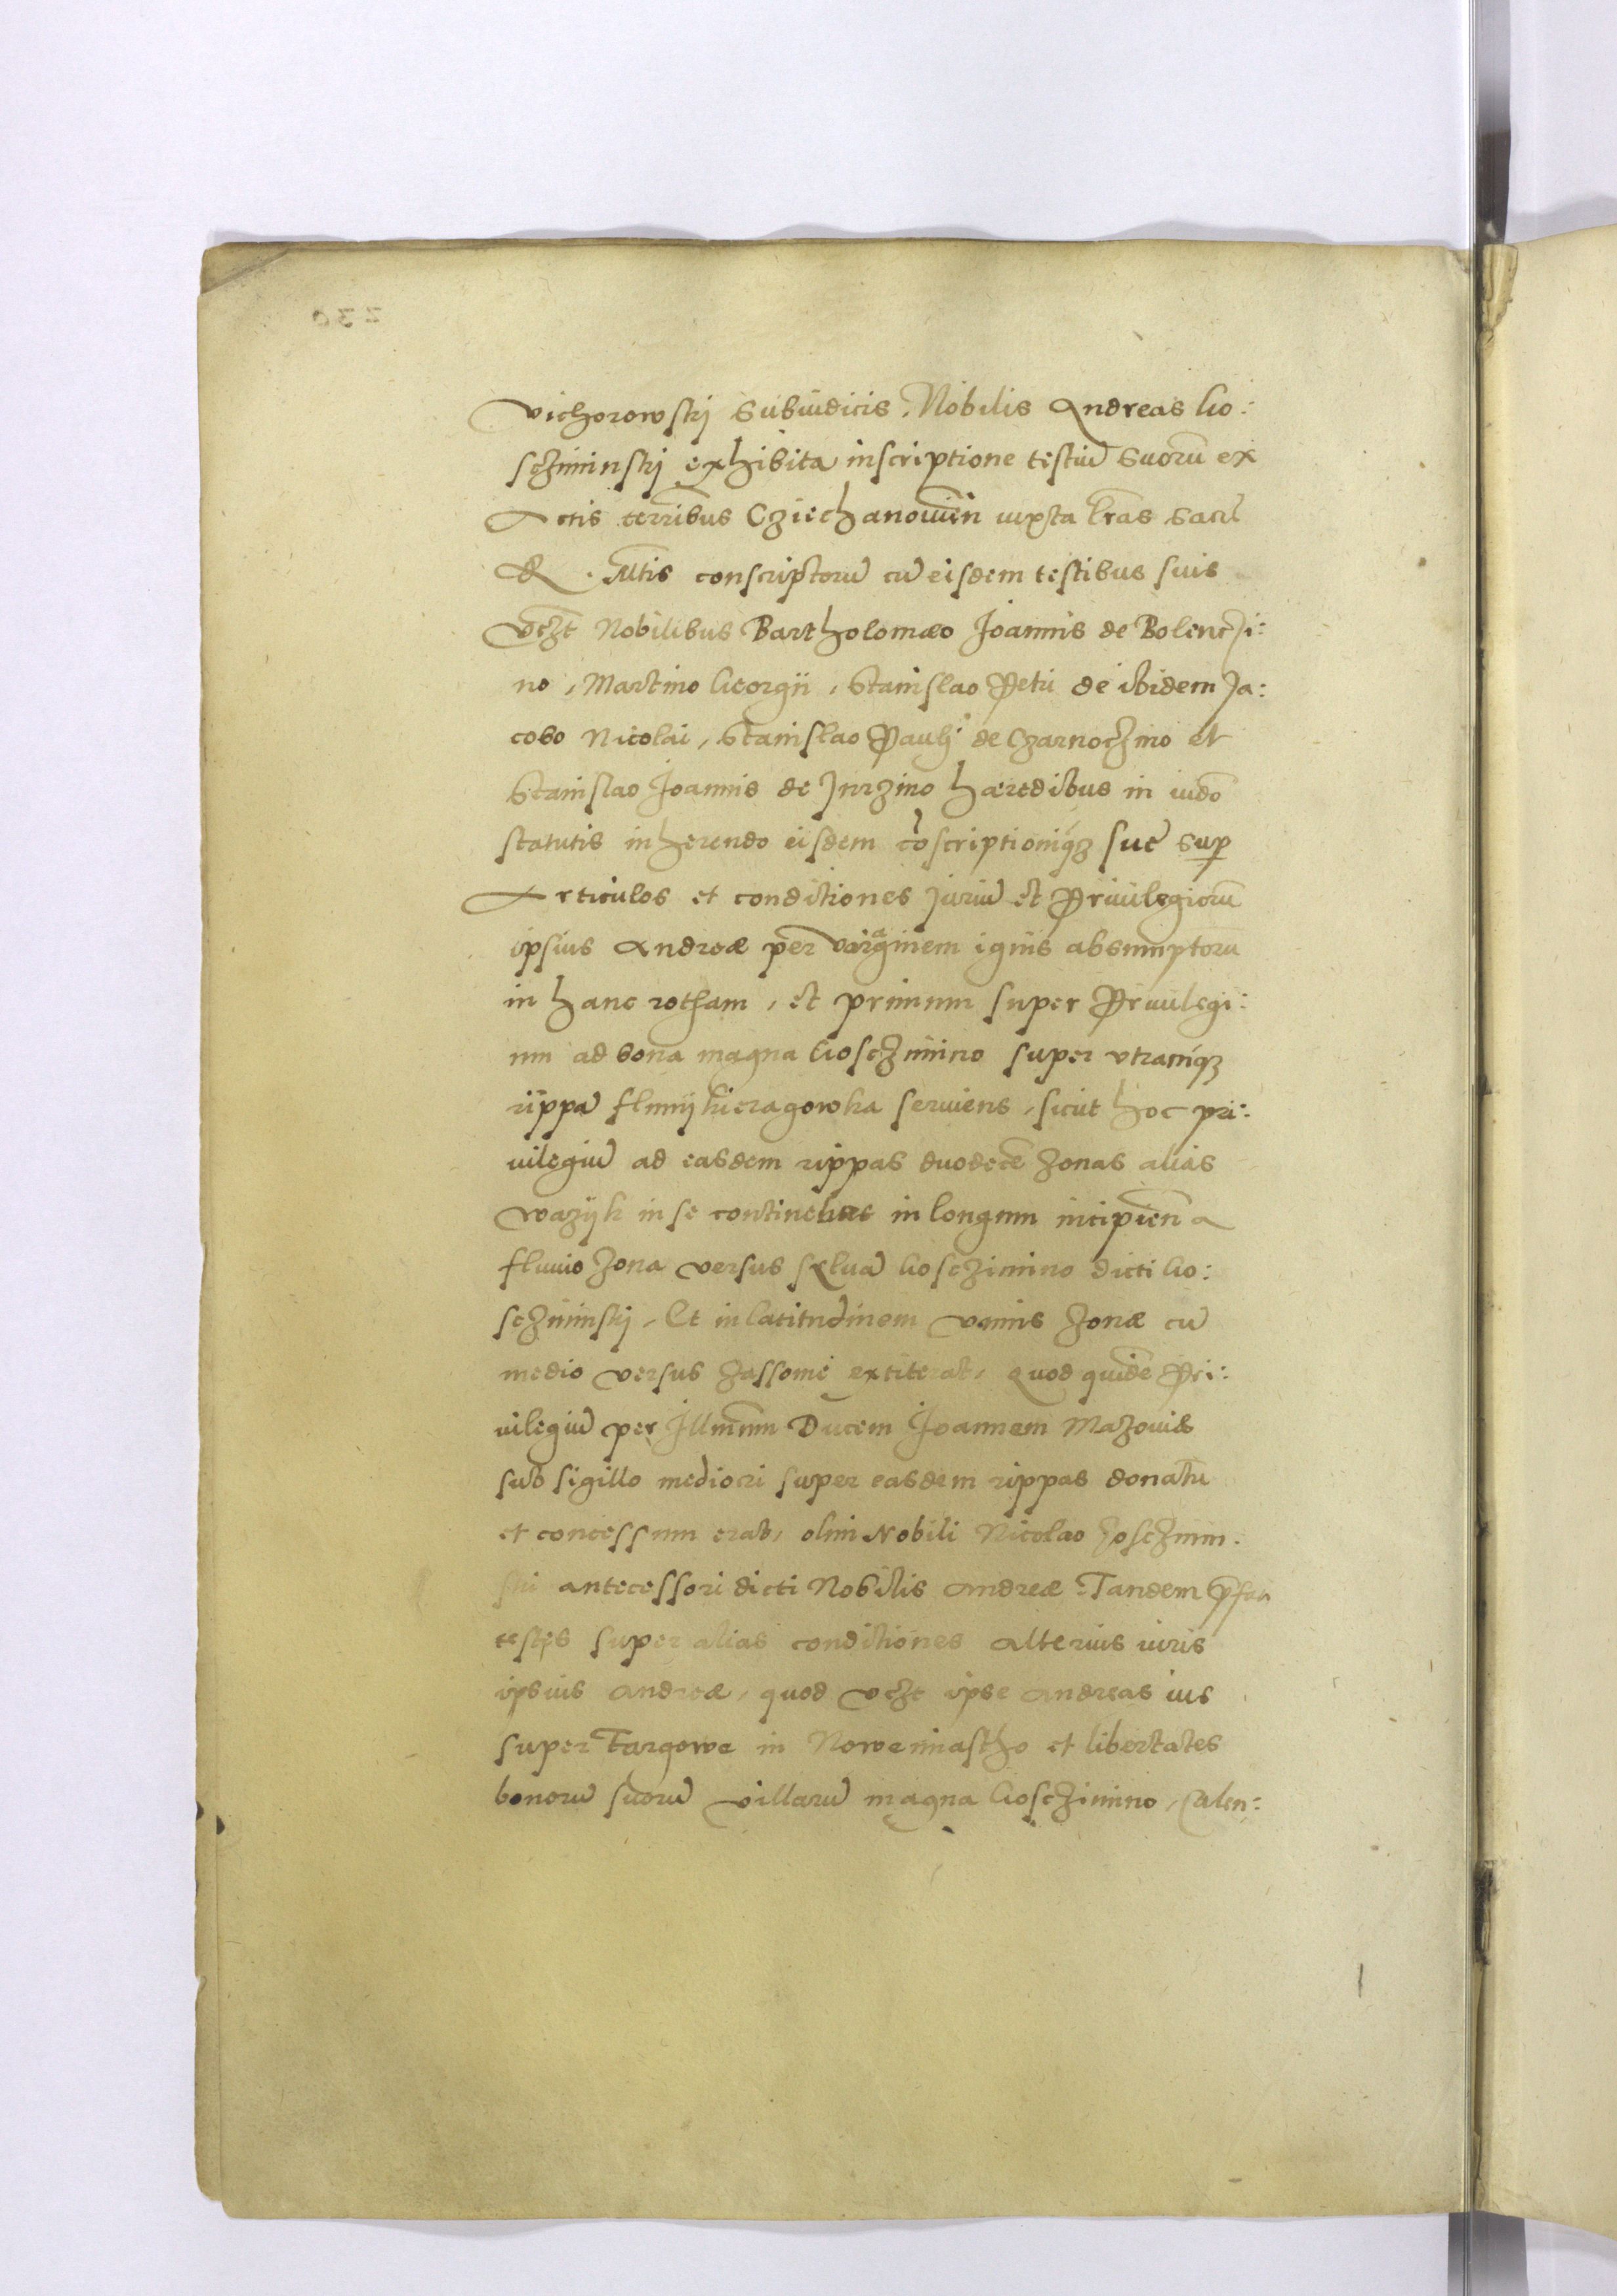 Vichorowskj Subiudicis, Nobilis Andreas Go:
sczÿminskj exhibita inscriptione testiū suorū ex
Actis terribus Cziechanowien̄ iuxta lr̄as Sacr̄
R. Mtis conscriptorū cū eisdem testibus suis
vczt Nobilibus Bartholomæo Joannis de Bolenczi:
no, Martino Georgii, Stanislao Petri de ibidem Ja:
cobo Nicolai, Stanislao Paulj de Czarnoczino et
Stanislao Joannis de Jnrzino hæredibus in iudō
statutis inherendo eisdem cōscriptioniqz sue sup
Articulos et conditiones Juriū et Priuilegiorū
ipsius Andreæ per voraginem ignis absumptorū
in hanc rotham, et primum super Priuilegi:
um ad bona magna Gosczimino super vtramqz
rippā fluuij Kieragowka seruiens, sicut hoc pri:
uilegiū ad easdem rippas duodecē zonas alias
wazijk in se continebat in longum incipien̄ a
fluuio zona versus syluā Gosczimino dicti Go:
sczÿminskj, Et in latitudinem vnius zonæ cū
medio versus Zassomie extiterat, quod quidē Pri:
uilegiū per Jllm̄um Ducem Joannem Mazouiæ
sub sigillo mediocri super easdem rippas donatū
et concessum erat, olim Nobili Nicolao GoscZimin:
ski antecessori dicti Nobilis Andreæ. Tandem p̄fati
testes super alias conditiones alterius iuris
ipsius Andreæ, quod vczt ipse Andreas ius
super Targowe in Nowe miastho et libertates
bonorū suorū villarū magna Gosczimino, Calen:
230